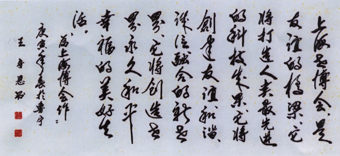 上海世博会是
友谊的桥梁它
将打造人类最先进
的科技成果它将
创建友谊和谐
课注融合的新世
界它将创造世
界永久和平
幸福的美好生
活
为上海世博会作
庚寅年春于阜宁
王